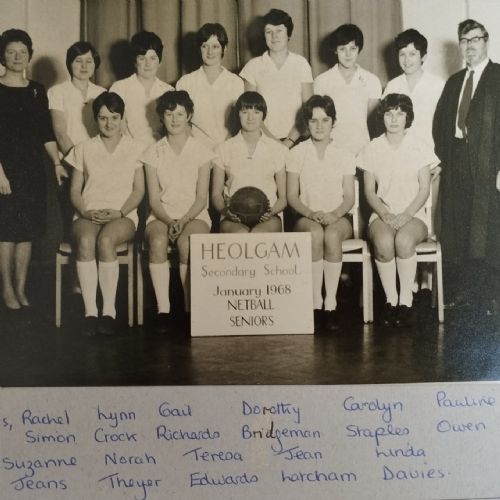 HEOLGAM
Secondary School
January 1968
NETBALL
SENIORS
s, Rachel Lynn Gail Dorothy Carolyn Pauline
Simon Crock Richards Bridgeman Staples Owen
Suzanne Norah Teresa Jean Linda
Jeans Theyer Edwards Larcham Davies.